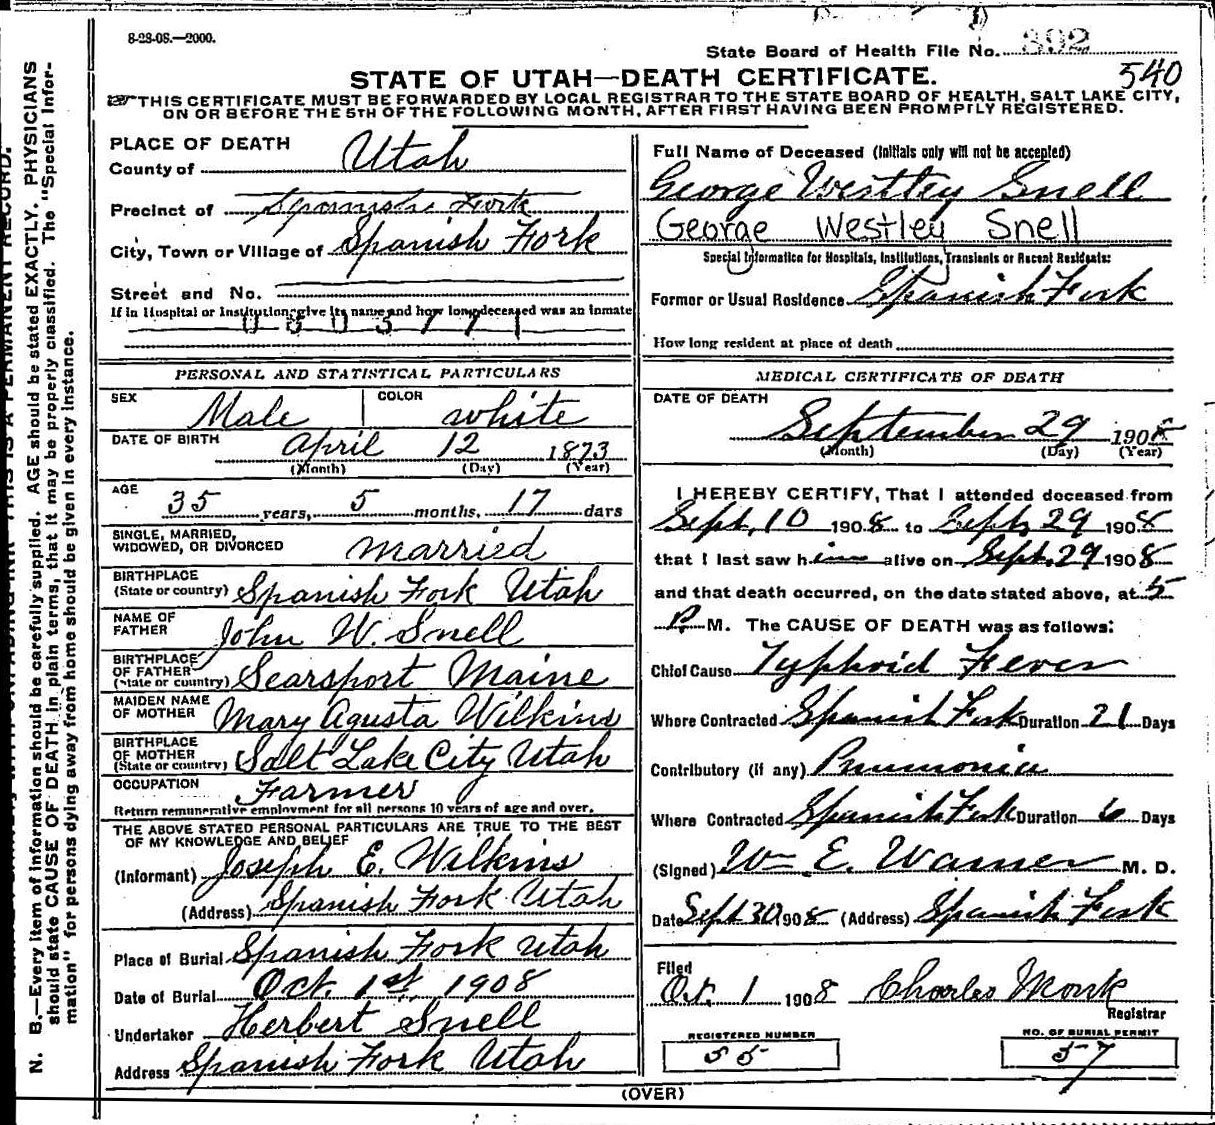 8-28-08.—2000.
State Board of Health File No. 392
540
STATE OF UTAH—DEATH CERTIFICATE.
THIS CERTIFICATE MUST BE FORWARDED BY LOCAL REGISTRAR TO THE STATE BOARD OF HEALTH, SALT LAKE CITY,
ON OR BEFORE THE 5TH OF THE FOLLOWING MONTH, AFTER FIRST HAVING BEEN PROMPTLY REGISTERED.
PLACE OF DEATH
County of Utah
Precinct of Spanish Fork
City, Town or Village of Spanish Fork
Street and No.
If in Hospital or Institution, give its name and how long deceased was an inmate
Full Name of Deceased (Initials only will not be accepted)
George Westley Snell
George Westley Snell
Special Information for Hospitals, Institutions, Transients or Recent Residents:
Former or Usual Residence Spanish Fork
How long resident at place of death
PERSONAL AND STATISTICAL PARTICULARS
SEX Male COLOR white
DATE OF BIRTH April 12 1873
(Month) (Day) (Year)
AGE 35 years, 5 months, 17 days
SINGLE, MARRIED,
WIDOWED, OR DIVORCED married
BIRTHPLACE
(State or country) Spanish Fork Utah
NAME OF
FATHER John W. Snell
BIRTHPLACE
OF FATHER
(State or country) Searsport Maine
MAIDEN NAME
OF MOTHER Mary Agusta Wilkins
BIRTHPLACE
OF MOTHER
(State or country) Salt Lake City Utah
OCCUPATION Farmer
Return remunerative employment for all persons 10 years of age and over.
THE ABOVE STATED PERSONAL PARTICULARS ARE TRUE TO THE BEST
OF MY KNOWLEDGE AND BELIEF
(Informant) Joseph E. Wilkins
(Address) Spanish Fork Utah
Place of Burial Spanish Fork Utah
Date of Burial Oct. 1st, 1908
Undertaker Herbert Snell
Address Spanish Fork Utah
MEDICAL CERTIFICATE OF DEATH
DATE OF DEATH
September 29 1908
(Month) (Day) (Year)
I HEREBY CERTIFY, That I attended deceased from
Sept, 10 1908 to Sept, 29 1908
that I last saw him alive on Sept. 29 1908
and that death occurred, on the date stated above, at 5
P. M. The CAUSE OF DEATH was as follows:
Chief Cause Typhoid Fever
Where Contracted Spanish Fork Duration 21 Days
Contributory (if any) Pnumonia
Where Contracted Spanish Fork Duration 6 Days
(Signed) Wm E. Warner M. D.
Date Sept 30 1908 (Address) Spanish Fork
Filed
Oct. 1 1908 Charles Monk
Registrar
REGISTERED NUMBER
55
NO. OF BURIAL PERMIT
57
(OVER)
N. B.—Every item of information should be carefully supplied. AGE should be stated EXACTLY. PHYSICIANS
should state CAUSE OF DEATH in plain terms, that it may be properly classified. The "Special Infor-
mation" for persons dying away from home should be given in every instance.